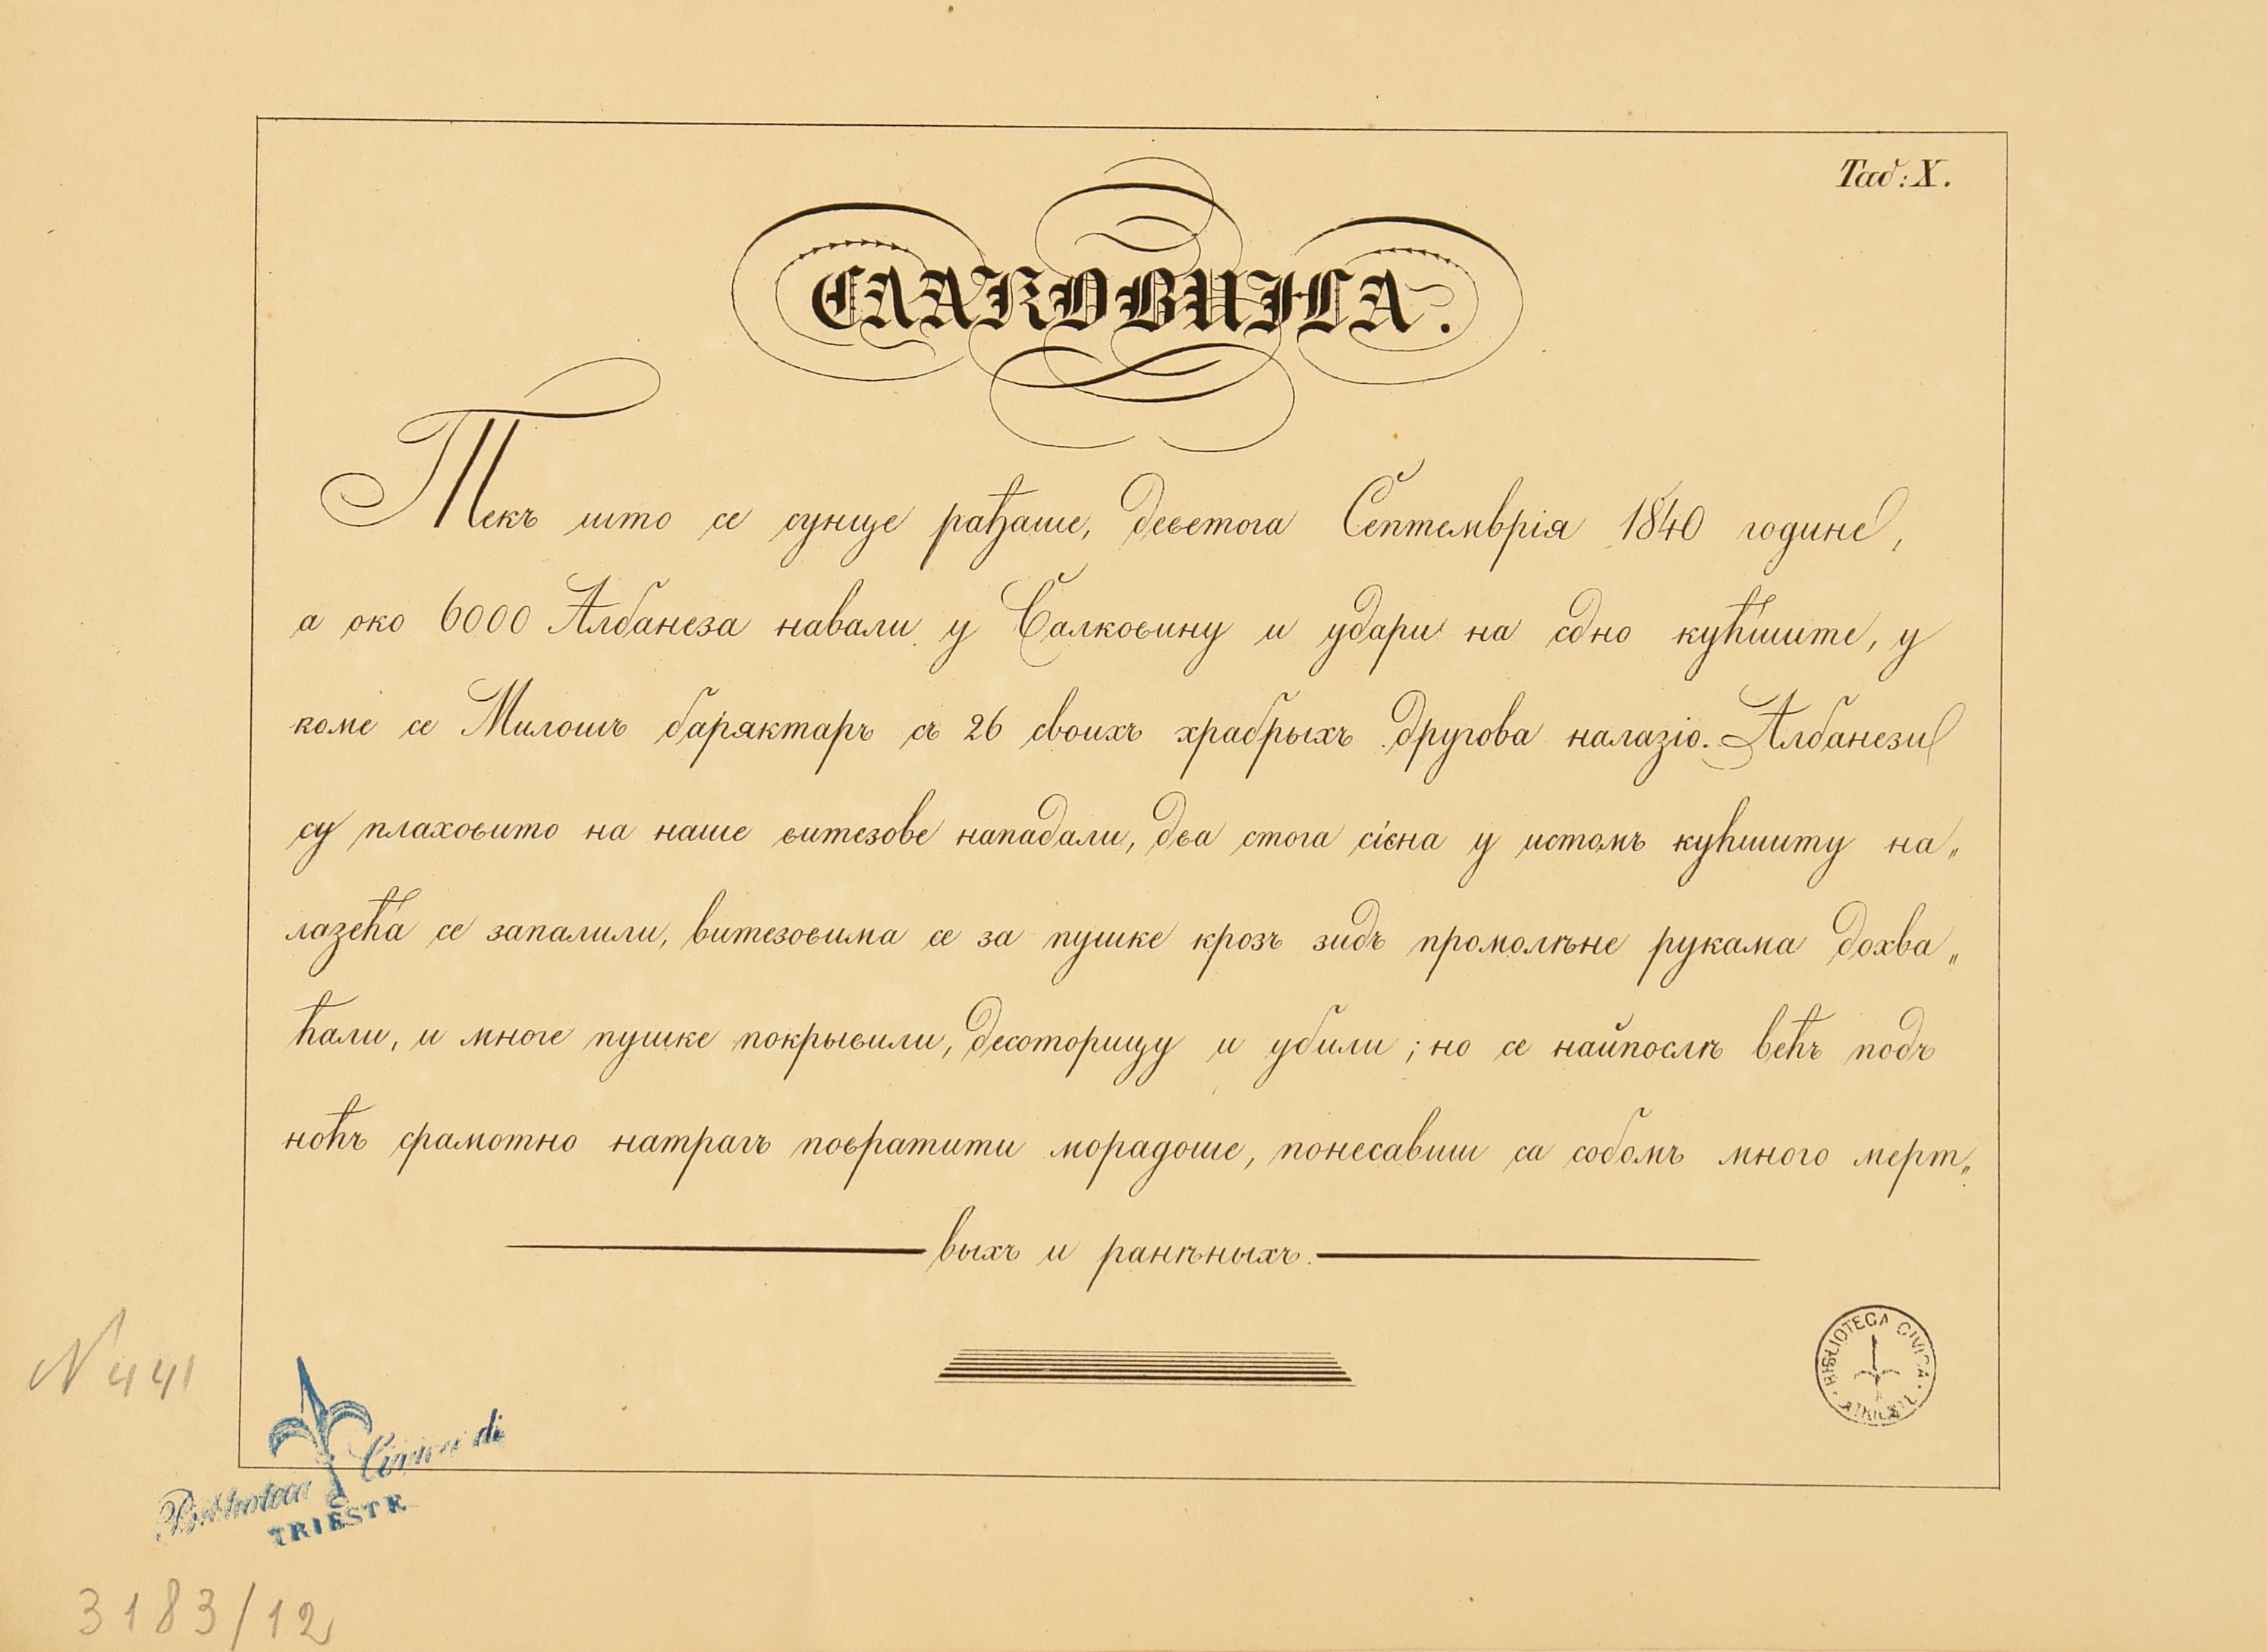 Таб: X.
САЛКОВИНА.
Текъ што се сунце рађаше, деветога Септемврія 1840 године,
а око 6000 Албанеза навали у Салковину и удари на едно кућиште, у
коме се Милошъ барактаръ съ 26 своихъ храбрыхъ другова налазіо. Албанези
су плаховито на наше витезове нападали, два стога сієна у истомъ кућишту на„
лазећа се запалили, витезовима се за пушке крозъ зидъ промолѣне рукама дохва„
ћали, и многе пушке покрывили, десоторицу и убили; но се найпослѣ већъ подъ
ноћъ срамотно натрагъ повратити морадоше, понесавши са собомъ много мерт„
выхъ и ранѣныхъ.
N 441
Biblioteca Civica di
TRIESTE
BIBLIOTECA CIVICA · TRIESTE ·
3183/12